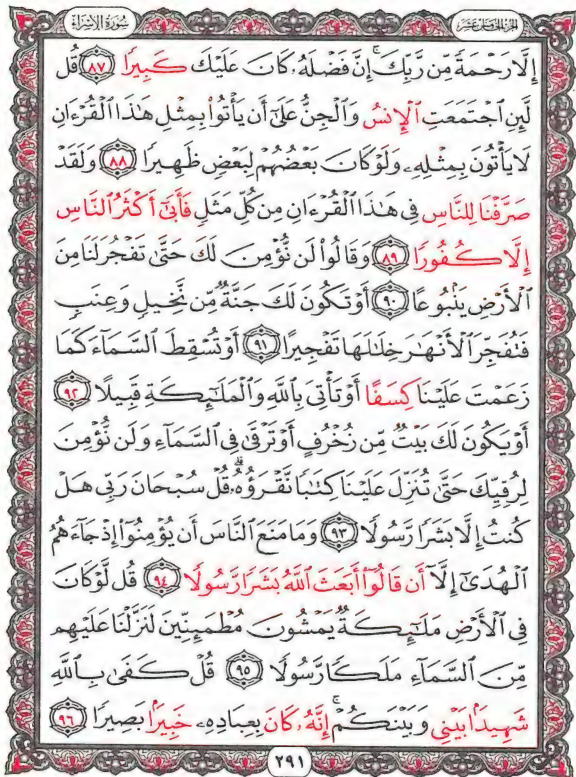 سُورَةُ الإِسْرَاءِ
الجُزءُ الخَامِسُ عَشَر
إِلَّا رَحْمَةً مِّن رَّبِّكَ ۚ إِنَّ فَضْلَهُۥ كَانَ عَلَيْكَ كَبِيرًا ﴿٨٧﴾ قُل
لَّئِنِ ٱجْتَمَعَتِ ٱلْإِنسُ وَٱلْجِنُّ عَلَىٰٓ أَن يَأْتُوا۟ بِمِثْلِ هَـٰذَا ٱلْقُرْءَانِ
لَا يَأْتُونَ بِمِثْلِهِۦ وَلَوْ كَانَ بَعْضُهُمْ لِبَعْضٍ ظَهِيرًا ﴿٨٨﴾ وَلَقَدْ
صَرَّفْنَا لِلنَّاسِ فِى هَـٰذَا ٱلْقُرْءَانِ مِن كُلِّ مَثَلٍ فَأَبَىٰٓ أَكْثَرُ ٱلنَّاسِ
إِلَّا كُفُورًا ﴿٨٩﴾ وَقَالُوا۟ لَن نُّؤْمِنَ لَكَ حَتَّىٰ تَفْجُرَ لَنَا مِنَ
ٱلْأَرْضِ يَنۢبُوعًا ﴿٩٠﴾ أَوْ تَكُونَ لَكَ جَنَّةٌ مِّن نَّخِيلٍ وَعِنَبٍ
فَتُفَجِّرَ ٱلْأَنْهَـٰرَ خِلَـٰلَهَا تَفْجِيرًا ﴿٩١﴾ أَوْ تُسْقِطَ ٱلسَّمَآءَ كَمَا
زَعَمْتَ عَلَيْنَا كِسَفًا أَوْ تَأْتِىَ بِٱللَّهِ وَٱلْمَلَـٰٓئِكَةِ قَبِيلًا ﴿٩٢﴾
أَوْ يَكُونَ لَكَ بَيْتٌ مِّن زُخْرُفٍ أَوْ تَرْقَىٰ فِى ٱلسَّمَآءِ وَلَن نُّؤْمِنَ
لِرُقِيِّكَ حَتَّىٰ تُنَزِّلَ عَلَيْنَا كِتَـٰبًا نَّقْرَؤُهُۥ ۗ قُلْ سُبْحَانَ رَبِّى هَلْ
كُنتُ إِلَّا بَشَرًا رَّسُولًا ﴿٩٣﴾ وَمَا مَنَعَ ٱلنَّاسَ أَن يُؤْمِنُوٓا۟ إِذْ جَآءَهُمُ
ٱلْهُدَىٰٓ إِلَّآ أَن قَالُوٓا۟ أَبَعَثَ ٱللَّهُ بَشَرًا رَّسُولًا ﴿٩٤﴾ قُل لَّوْ كَانَ
فِى ٱلْأَرْضِ مَلَـٰٓئِكَةٌ يَمْشُونَ مُطْمَئِنِّينَ لَنَزَّلْنَا عَلَيْهِم
مِّنَ ٱلسَّمَآءِ مَلَكًا رَّسُولًا ﴿٩٥﴾ قُلْ كَفَىٰ بِٱللَّهِ
شَهِيدًۢا بَيْنِى وَبَيْنَكُمْ ۚ إِنَّهُۥ كَانَ بِعِبَادِهِۦ خَبِيرًۢا بَصِيرًا ﴿٩٦﴾
٢٩١